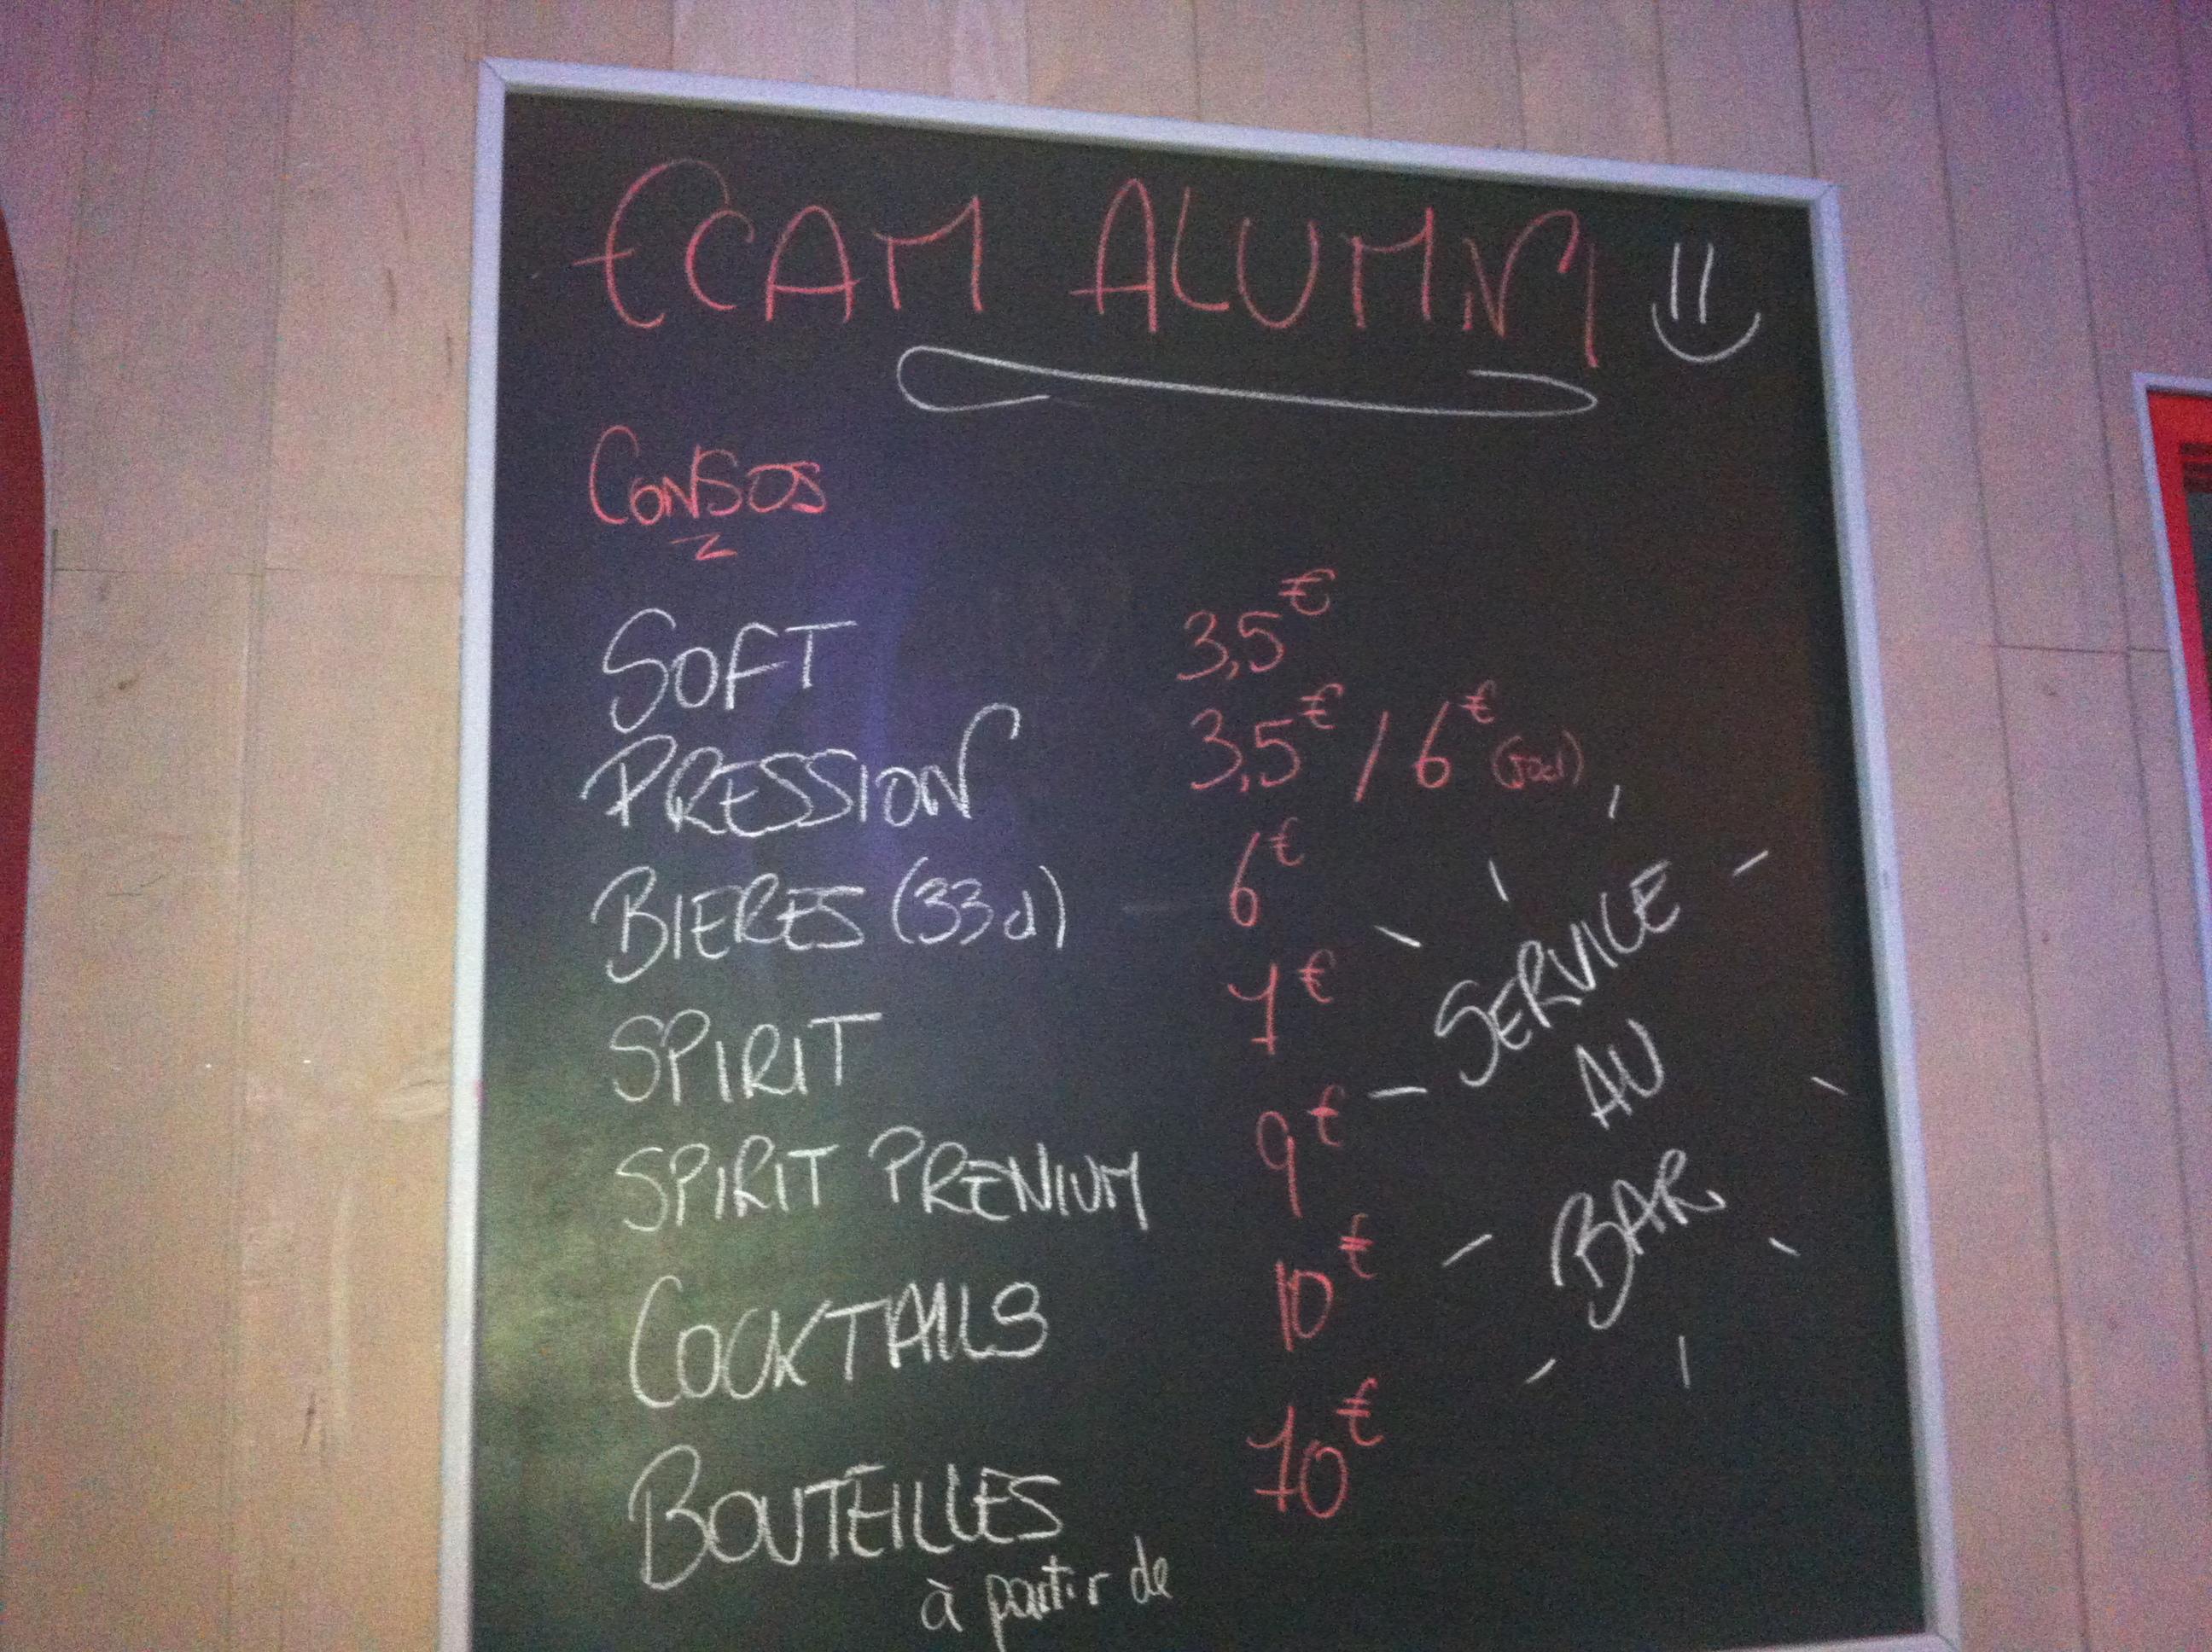 ECAM ALUMNI
CONSOS
SOFT 3,5€
PRESSION 3,5€ / 6€ (50cl)
BIERES (33cl) 6€
SPIRIT 7€
SPIRIT PRENIUM 9€
COCKTAILS 10€
BOUTEILLES 70€
à partir de
SERVICE
AU
BAR